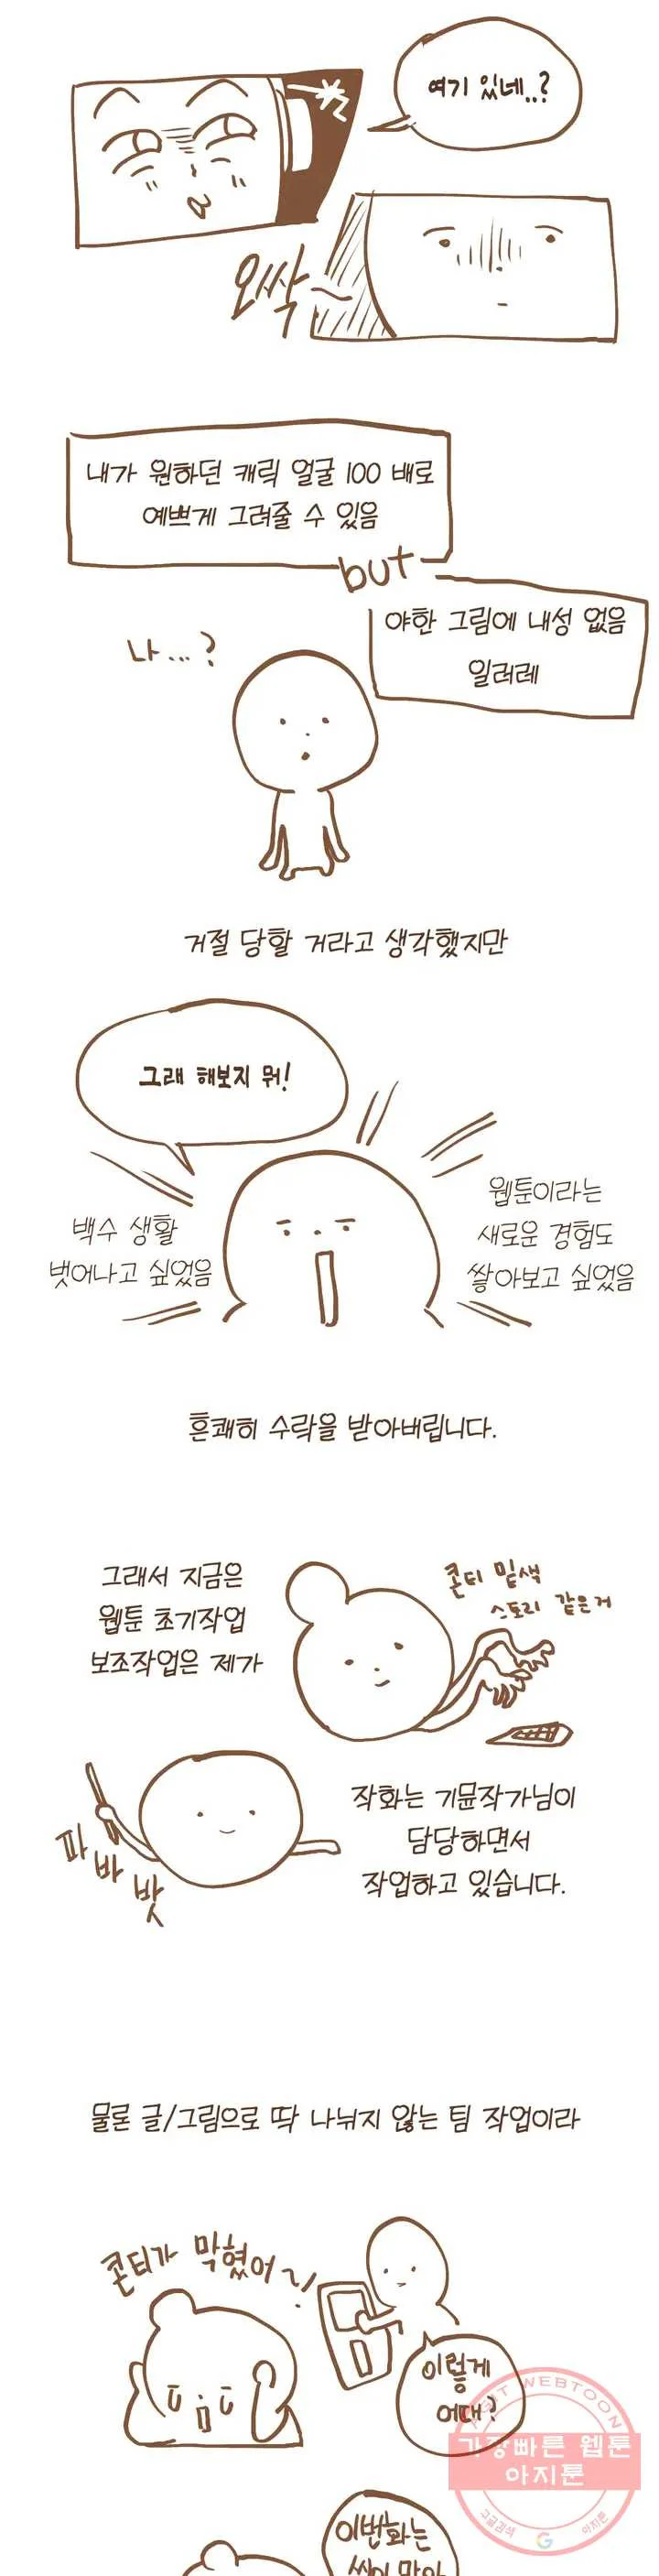 여기 있네..?
오싹
내가 원하던 캐릭 얼굴 100 배로
예쁘게 그려줄 수 있음
but
야한 그림에 내성 없음
일러레
나...?
거절 당할 거라고 생각했지만
그래 해보지 뭐!
백수 생활
벗어나고 싶었음
웹툰이라는
새로운 경험도
쌓아보고 싶었음
흔쾌히 수락을 받아버립니다.
그래서 지금은
웹툰 초기작업
보조작업은 제가
콘티 밑색
스토리 같은거
파
바
밧
작화는 기뮨작가님이
담당하면서
작업하고 있습니다.
물론 글/그림으로 딱 나눠지 않는 팀 작업이라
콘티가 막혔어~!
이렇게
어때?
WEBTOON
가장빠른 웹툰
아지툰
구글검색
G
아지툰
이번화는